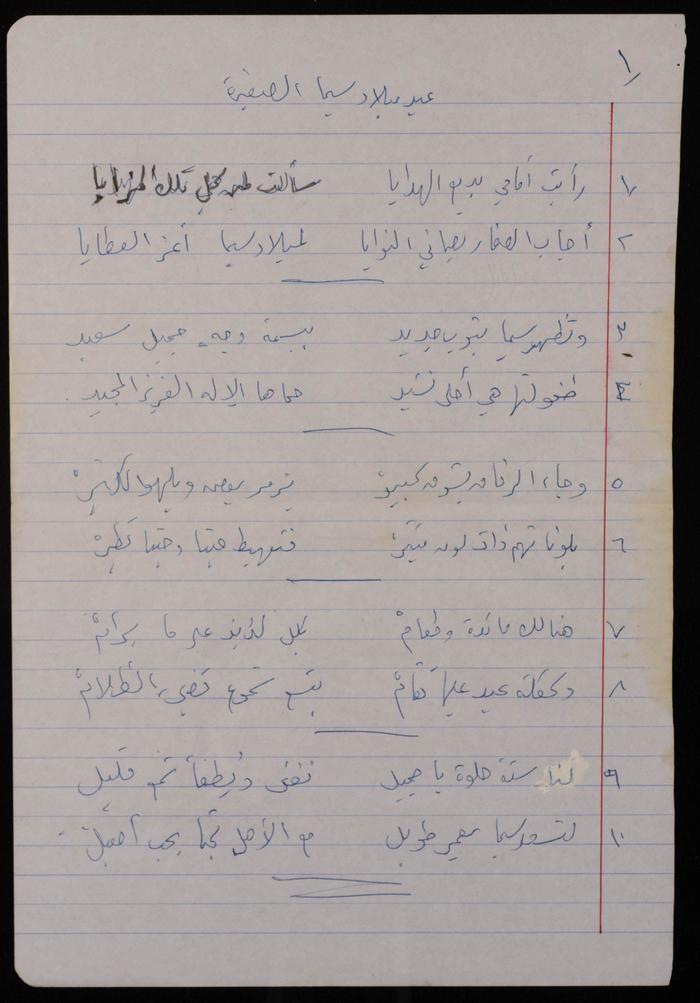 ١
عيد ميلاد سيما الصغيرة
١ رأيت أمامي بديع الهدايا سألت لمن كل تلك المزايا
٢ أجاب الصغار بصافي النوايا لميلاد سيما أعز العطايا
٣ وتظهر سيما بثوب جديد ببسمة وجه جميل سعيد
٤ طفولتها هي أحلى نشيد حماها الإله العزيز المجيد
٥ وجاء الرفاق بشوق كبير يزمر بعض ويلهو الكثير
٦ بلوناتهم ذات لون مثير فتهبط حينا وحينا تطير
٧ هنالك مائدة وطعام بكل لذيذ على ما يرام
٨ وكعكة عيد عليها تقام بتسع شموع تضيء الظلام
٩ لنا سنة حلوة يا جميل نغني ويطفأ شمع قليل
١٠ لتسعد سيما بعمر طويل مع الأهل تحيا بحب أصيل